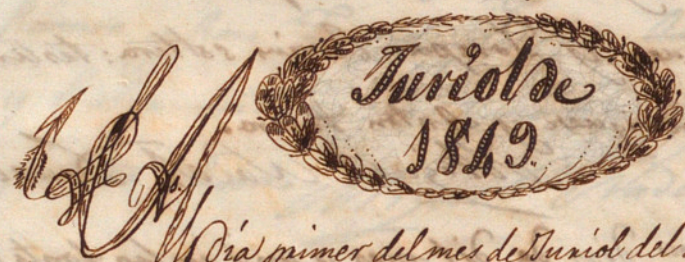 Juriol de
1849.
Dia primer del mes de Juriol del